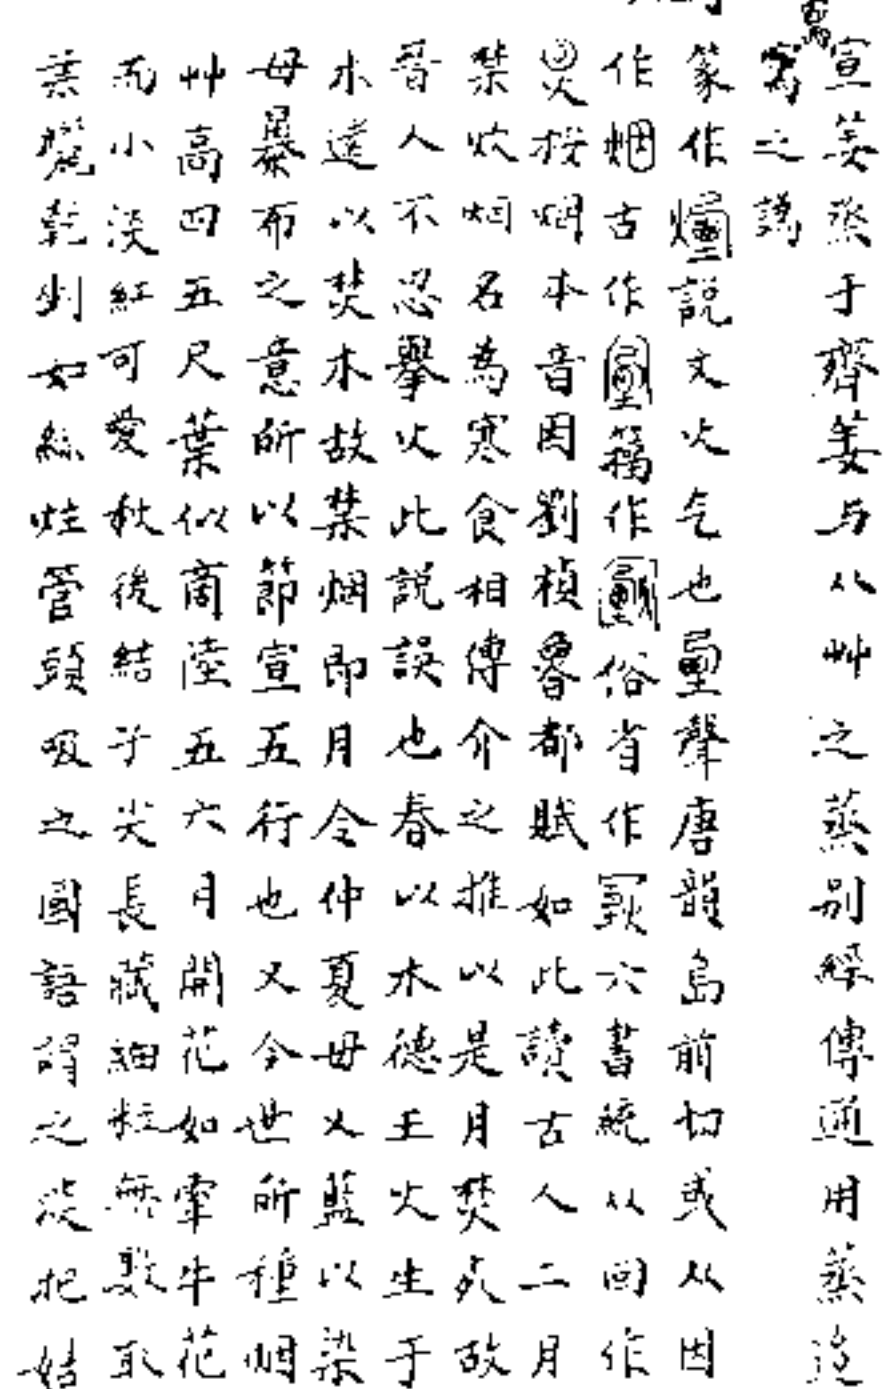 宣姜烝于齊姜与从艸之蒸别經傳通用蒸迄
之譌
篆作煙説文火气也垔聲唐韻烏前切或从因
作烟古作籀作俗省作六書統从回作
炅按烟本音因劉楨魯都賦如此讀古人二月
禁炊烟名為寒食相傳介之推以是月焚死故
晉人不忍舉火此説誤也春以木德王火生于
木遠以焚木故禁烟即月令仲夏毋乂藍以染
毋暴布之意所以節宣五行也又今世所種烟
艸高四五尺葉似商陸五六月開花如牽牛花
而小淡紅可愛秋後結子尖長藏細粒無數取
葉曬乾剉如絲炷管頭吸之國語謂之淡把姑